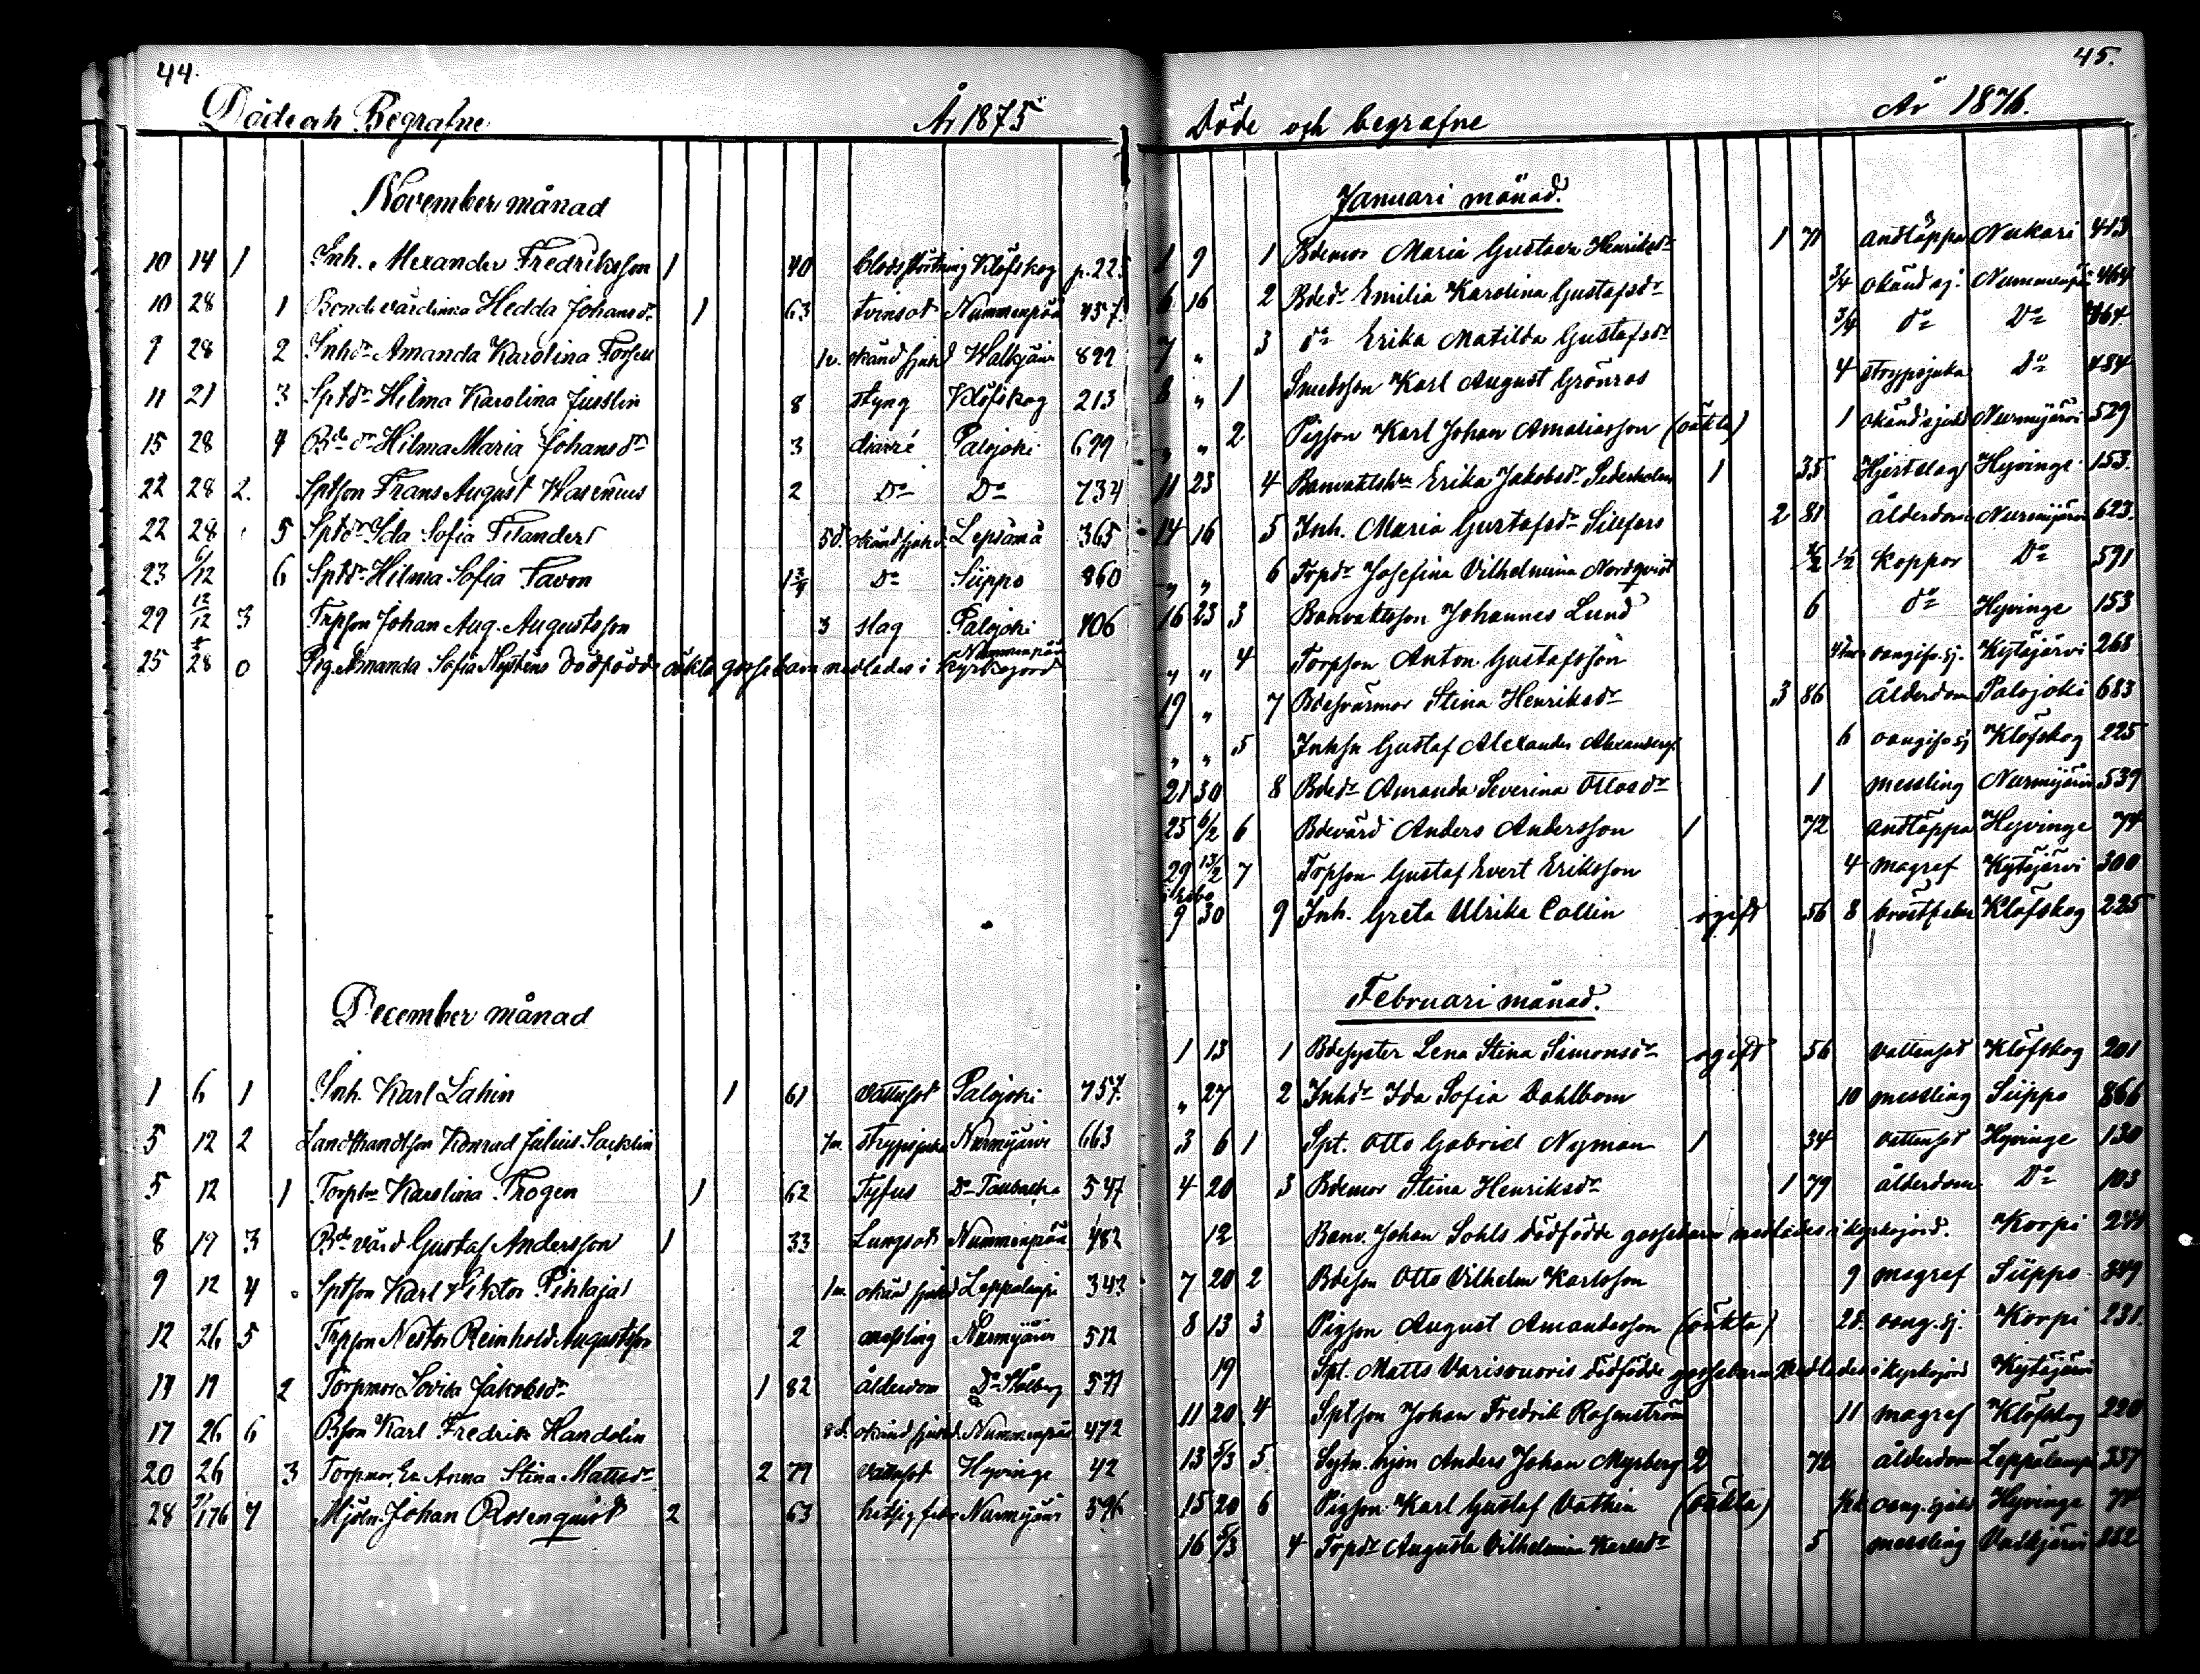 44.
Döde och Begrafne År 1875
November månad
10 14 1 Inh. Alexander Fredriksson 1 40 blodstörtning Klöfskog p. 225
10 28 1 Bondevärdinna Hedda Johansdr 1 63 tvinsot Nummenpää 457.
9 28 2 Inhdr Amanda Karolina Forsell 1v. okänd sjukd Walkjärvi 822
11 21 3 Sptdr Hilma Karolina Jusslin 8 styng Klöfskog 213
15 28 4 Bde dr Hilma Maria Johansdr 3 diarré Palojoki 699
22 28 2. Sptson Frans August Wasenius 2 Do Do 734
22 28 5 Sptdr Ida Sofia Filander 5d. okänd sjukd. Lepsämä 365
23 6/12 6 Sptdr Hilma Sofia Favon 1 3/4 Do Siippo 860
29 12/12 3 Trpson Johan Aug. Augustsson 3 slag Palojoki 706
25 28 0 Pig. Amanda Sofia Nysténs dödfödde oäkta gossebarn nedlades i Nummenpää kyrkogård
December månad
1 6 1 Inh. Karl Lahin 1 61 vattusot Palojoki 757.
5 12 2 Landthandlson Konrad Julius Sacklin 7m strypsjuka Nurmijärvi 663
5 12 1 Torphu Karolina Frogen 1 62 Tyfus Do 547
8 19 3 Bdevärd Gustaf Andersson 1 33 Lungsot Nummenpää 482
9 12 4 Sptson Karl Viktor Pihlaja 1m okänd sjukd Leppälampi 343
12 26 5 Trpson Nestor Reinhold Augustsson 2 messling Nurmijärvi 512
14 19 2 Torpmor Lovisa Jakobsdr 1 82 ålderdom Do Stålberg 571
17 26 6 Bson Karl Fredrik Handolin 8d. okänd sjukd. Nummenpää 472
20 26 3 Torpmor, En. Anna Stina Mattsdr 2 79 vattusot Hyvinge 42
28 9/1 76 7 Mjöln. Johan Rosenquist 2 63 hetsig feber Nurmijärvi 596
45.
Döde och begrafne År 1876.
Januari månad.
1 9 1 Bdemor Maria Gustava Henriksdr 1 71 andtäppa Nukari 413
6 16 2 Bdedr Emilia Karolina Gustafsdr 3/4 okänd sj. Nummenpää 464
7 " 3 do Erika Matilda Gustafsdr 3/4 do Do 464
8 " 1 Smedsson Karl August Grönros 4 strypsjuka Do 484
" " 2 Pigson Karl Johan Amaliasson (oäkta) 1 okänd sjukd Nurmijärvi 529
11 23 4 Banvaktshu Erika Jakobsdr Sederholm 1 35 Hjertslag Hyvinge 153.
14 16 5 Inh. Maria Gustafsdr Silfors 2 81 ålderdom Nurmijärvi 623.
" " 6 Trpdr Josefina Vilhelmina Nordqvist 1/2 koppor Do 591
16 23 3 Banvaktsson Johannes Lund 6 do Hyvinge 153
" " 4 Torpson Anton Gustafsson oangifv. sj. Kytäjärvi 268
19 " 7 Bdesvärmor Stina Henriksdr 3 86 ålderdom Palojoki 683
" " 5 Inhsn Gustaf Alexander 6 oangifv sj Klöfskog 225
21 30 8 Bdedr Amanda Severina Ottosdr 1 messling Nurmijärvi 539
25 6/2 6 Bdevärd Anders Andersson 1 72 andtäppa Hyvinge 74
29 13/2 7 Tpson Gustaf Evert Eriksson 4 magref Kytäjärvi 300
9 30 9 Inh. Greta Ulrika Collin ogift 56 8 bröstfeber Klöfskog 225
Februari månad.
1 13 1 Bdesyster Lena Stina Simonsdr ogift 56 vattensot Klöfskog 201
" 27 2 Inhdr Ida Sofia Dahlbom 10 messling Siippo 866
3 6 1 Spt. Otto Gabriel Nyman 1 34 vattensot Hyvinge 130
4 20 3 Bdemor Stina Henriksdr 1 79 ålderdom Do 103
12 Banv. Johan Sohls dödfödde gossebarn nedlades i kyrkojord. Korpi 244
7 20 2 Bdeson Otto Vilhelm Karlsson 9 magref Siippo 849
8 13 3 Pigson August Amandasson (oäkta) 2d. oang. sj. Korpi 231.
19 Spt. Matts Varisvuoris dödfödde gossebarn nedlades i kyrkojord Kytäjärvi
11 20 4 Sptson Johan Fredrik Rosenström 11 magref Klöfskog 220
13 5/3 5 Sytn. hjon Anders Johan Myrberg 2 72 ålderdom Leppälampi 337
15 20 6 Pigson Karl Gustaf Vathin (oäkta) oang. sjukd Hyvinge 74
16 5/3 4 Trpdr Augusta Vilhelmina Karlsdr 5 messling Valkjärvi 832